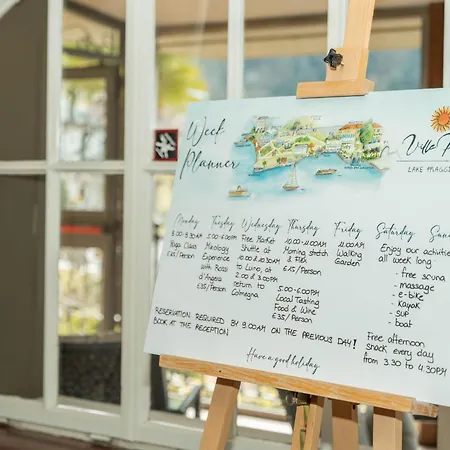 Week
Planner
Villa
LAKE MAGGI
Monday
8.00-8.30AM
Yoga Class
€15/Person
Tuesday
5.00-6.00
PM
Mixology
Experience
with Rossi
d'Angera
€35/Person
Wednesday
Free Market
Shuttle at
10.00 & 10.30AM
to Luino, at
2.00 & 3.00PM
return to
Colmegna
Thursday
10.00-11.00AM
Morning stretch
& Flex
€15/Person
5.00-6.00PM
Local Tasting
Food & Wine
€35/Person
Friday
11.00AM
Walking
Garden
Saturday
Sun
Enjoy our activitie
all week long:
- free sauna
- massage
- e-bike
- kayak
- SUP
- boat
Free afternoon
snack every day
from 3.30 to 4.30PM
RESERVATION REQUIRED BY 8.00AM ON THE PREVIOUS DAY!
BOOK AT THE RECEPTION
Have a good holiday